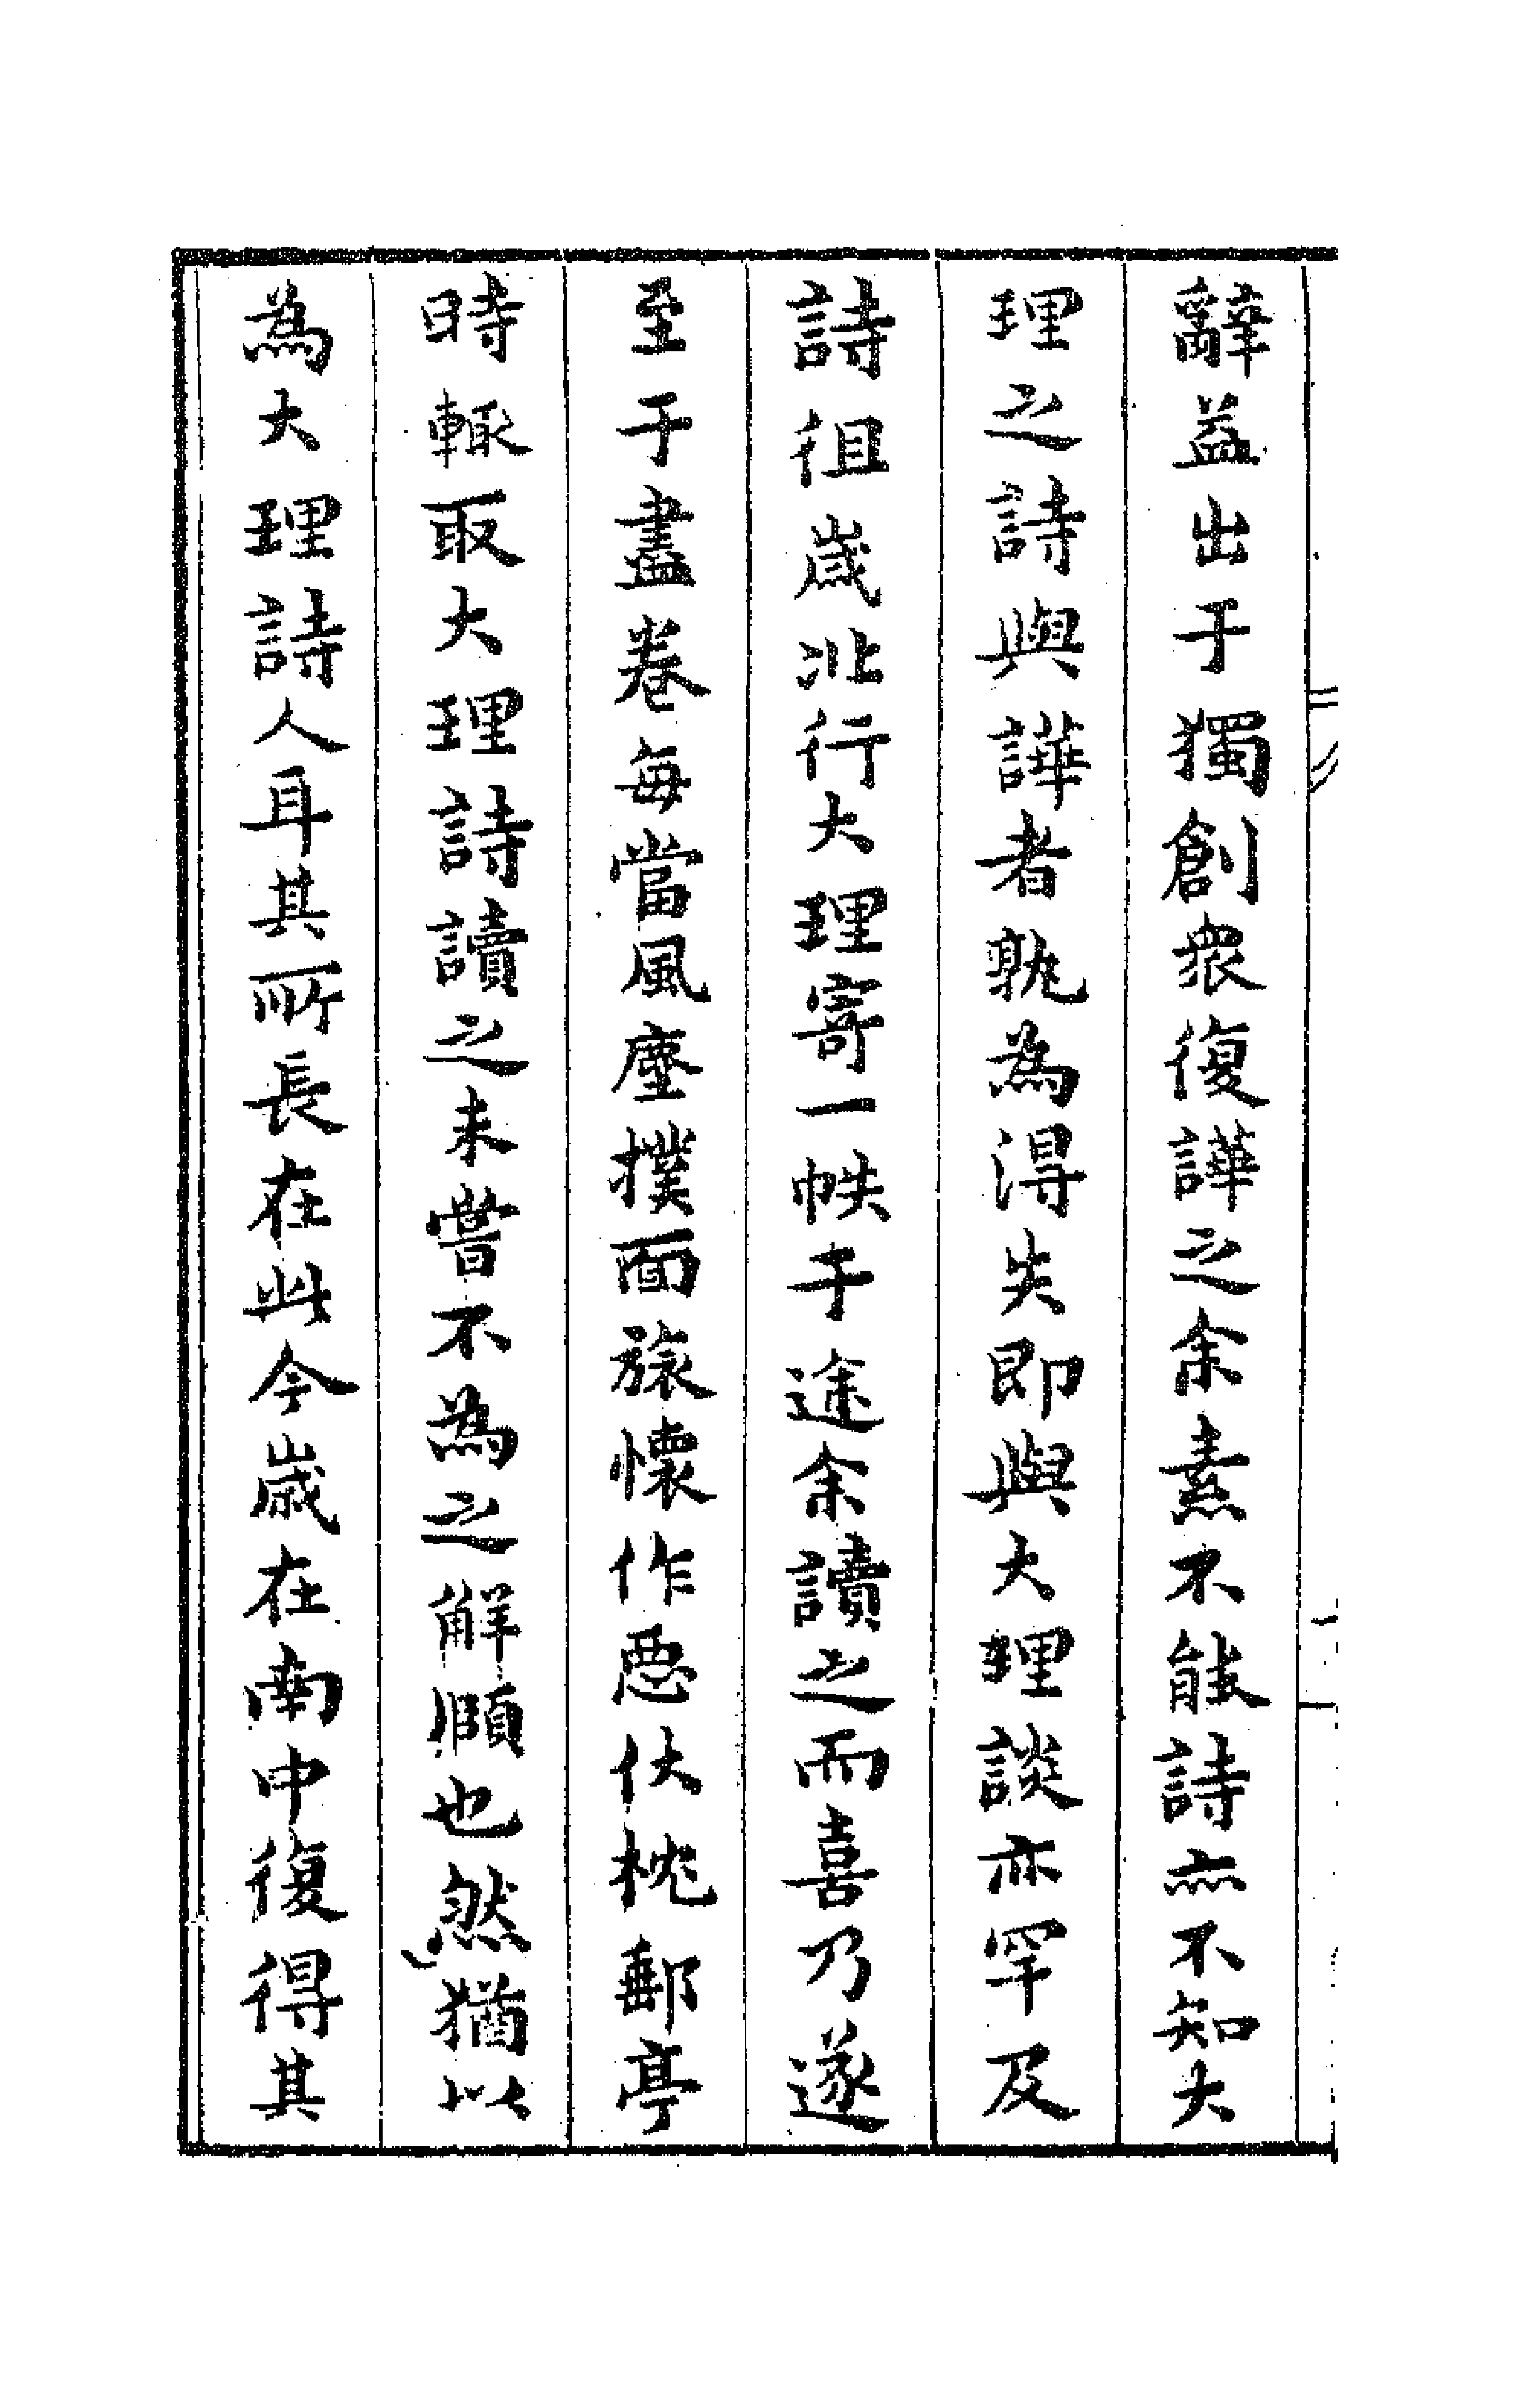 辭益出于獨創衆復譁之余素不能詩亦不知大
理之詩與譁者孰為得失即與大理談亦罕及
詩徂歲北行大理寄一帙于途余讀之而喜乃遂
至于盡卷每當風塵撲面旅懷作惡伏枕郵亭
時輒取大理詩讀之未嘗不為之解頤也然猶以
為大理詩人耳其所長在此今歲在南中復得其